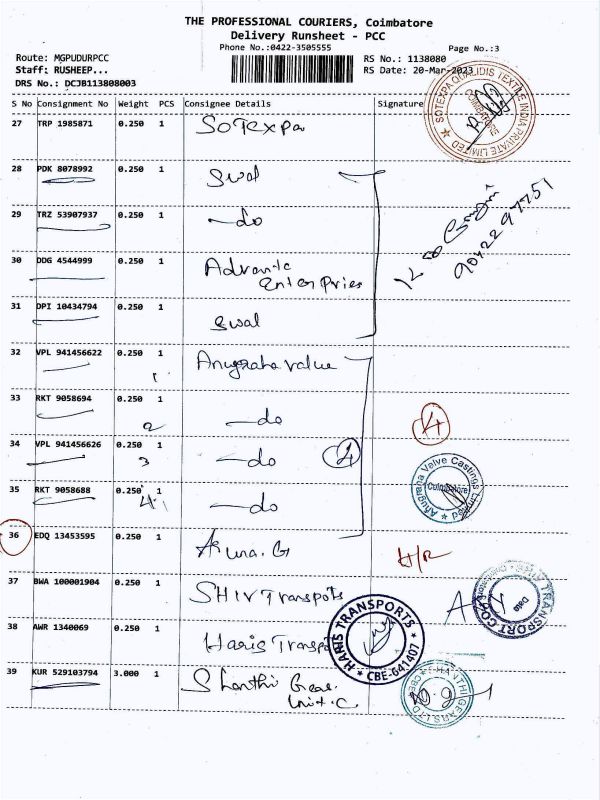 THE PROFESSIONAL COURIERS, Coimbatore
Delivery Runsheet - PCC
Phone No.:0422-3505555
Page No.:3
Route: MGPUDURPCC
RS No.: 1138080
Staff: RUSHEEP...
RS Date: 20-Mar-2023
DRS No.: DCJB113808003
S No Consignment No Weight PCS Consignee Details Signature
27 TRP 1985871 0.250 1 SOTEXPA
SOTEXPA QUALIDIS TEXTILE INDIA PRIVATE LIMITED
COIMBATORE
28 PDK 8078992 0.250 1 Swal
29 TRZ 53907937 0.250 1 -do
90422 97751
30 DDG 4544999 0.250 1 Advante
Enterpries
31 DPI 10434794 0.250 1 Swal
32 VPL 941456622 0.250 1 Anugraha value
1
33 RKT 9058694 0.250 1 -do
2
4
34 VPL 941456626 0.250 1 -do
3
4
35 RKT 9058688 0.250 1 -do
4
Anugraha Valve Castings Limited
Coimbatore
36 EDQ 13453595 0.250 1 Aruna.G H/R
37 BWA 100001904 0.250 1 SHIV Transpots
38 AWR 1340069 0.250 1 Haris Transpo
HARIS TRANSPORTS
CBE-641407
39 KUR 529103794 3.000 1 Shanthi Gear.
Unit.C
SHANTHI GEARS LTD
CBE